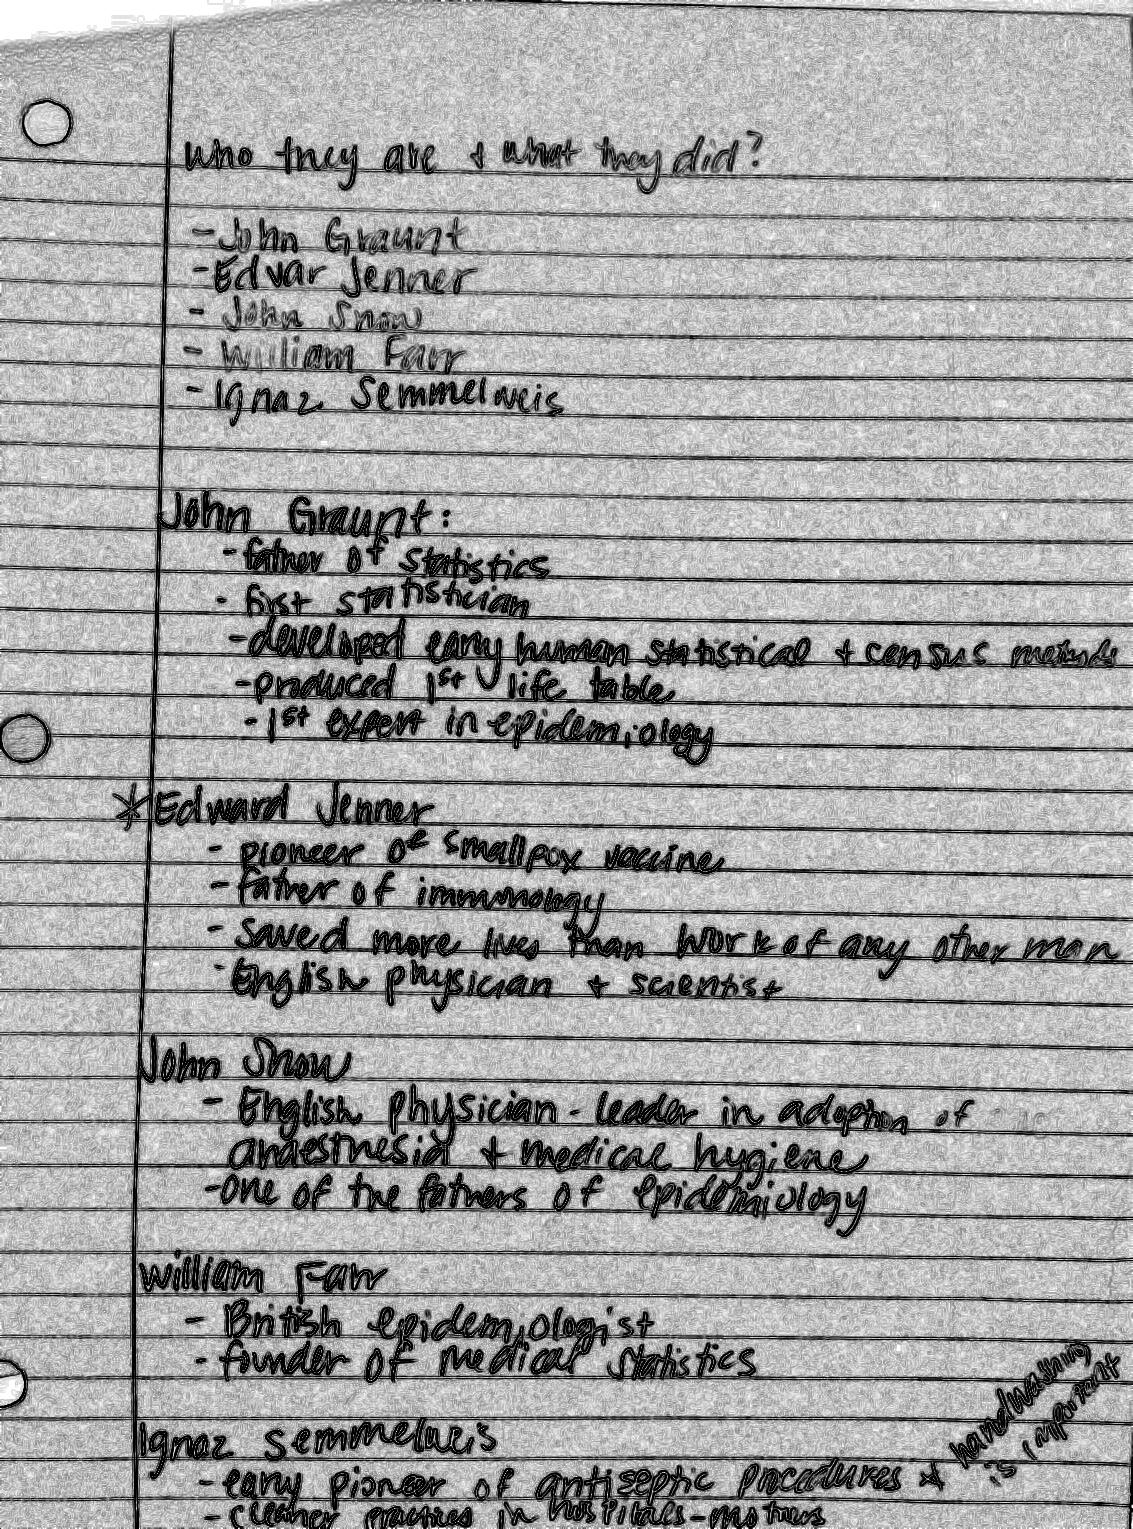 who they are + what they did?
- John Graunt
- Edvar Jenner
- John Snow
- William Farr
- Ignaz Semmelweis
John Graunt:
- father of statistics
- first statistician
- developed early human statistical + census methods
- produced 1st life table
- 1st expert in epidemiology
* Edward Jenner
- pioneer of smallpox vaccine
- father of immunology
- saved more lives than work of any other man
- English physician + scientist
John Snow
- English physician - leader in adoption of
anaesthesia + medical hygiene
- one of the fathers of epidemiology
William Farr
- British epidemiologist
- founder of medical statistics
Ignaz semmelweis
- early pioneer of antiseptic procedures * handwashing
is important
- cleaner practices in hospitals - mothers